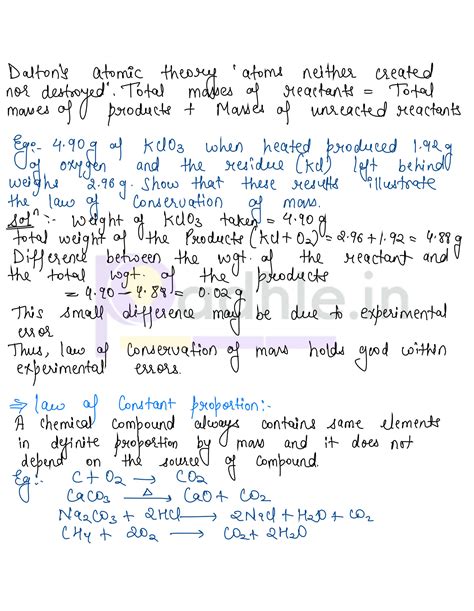 Dalton's atomic theory 'atoms neither created
nor destroyed'. Total masses of reactants = Total
masses of products + Masses of unreacted reactants
Eg:- 4.90g of KClO3 when heated produced 1.92g
of oxygen and the residue (KCl) left behind
weighs 2.96 g. Show that these results illustrate
the law of Conservation of mass.
Solⁿ:- Weight of KClO3 taken = 4.90 g
total weight of the Products (KCl + O2) = 2.96 + 1.92 = 4.88g
Difference between the wgt. of the reactant and
the total wgt. of the products
= 4.90 - 4.88 = 0.02 g
This small difference may be due to experimental
error
Thus, law of Conservation of mass holds good within
experimental errors.
⇒ Law of Constant proportion:-
A chemical compound always contains same elements
in definite proportion by mass and it does not
depend on the source of compound.
Eg:- C + O2 → CO2
CaCO3 →Δ CaO + CO2
Na2CO3 + 2HCl → 2NaCl + H2O + CO2
CH4 + 2O2 → CO2 + 2H2O
padhle.in